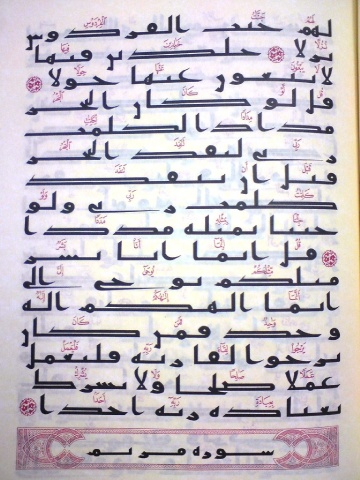 لهم جنت الفردوس
نزلا ۝ خلدين فيها
لا يبغون عنها حولا ۝
قل لو كان البحر
مدادا لكلمت
ربي لنفد البحر
قبل ان تنفد
كلمت ربي ولو
جئنا بمثله مددا
۝ قل انما انا بشر
مثلكم يوحى الي
انما الهكم اله
وحد فمن كان
يرجوا لقا ربه فليعمل
عملا صلحا ولا يشرك
بعباده ربه احدا ۝
سوره مريم